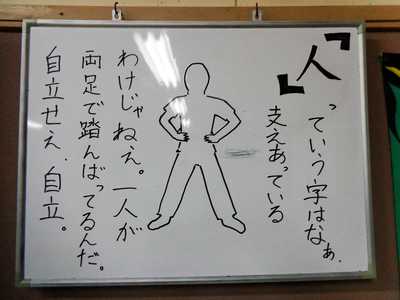 「人」
っていう字はなぁ、
支えあっている
わけじゃねえ。一人が
両足で踏んばってるんだ。
自立せえ、自立。